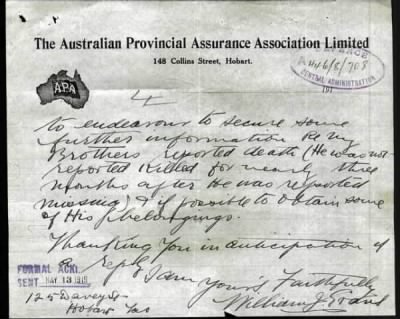 The Australian Provincial Assurance Association Limited
148 Collins Street, Hobart.
CENTRAL ADMINISTRATION
191
APA
4
to endeavour to secure some
further information Re my
Brothers reported death (He was not
reported Killed for nearly three
months after He was reported
missing) & if possible to obtain some
of His belongings.
Thanking You in anticipation of
a Reply
I am Yours Faithfully
William J Evans
FORMAL ACK.
SENT MAY 13 1918
125 Davey St
Hobart Tas